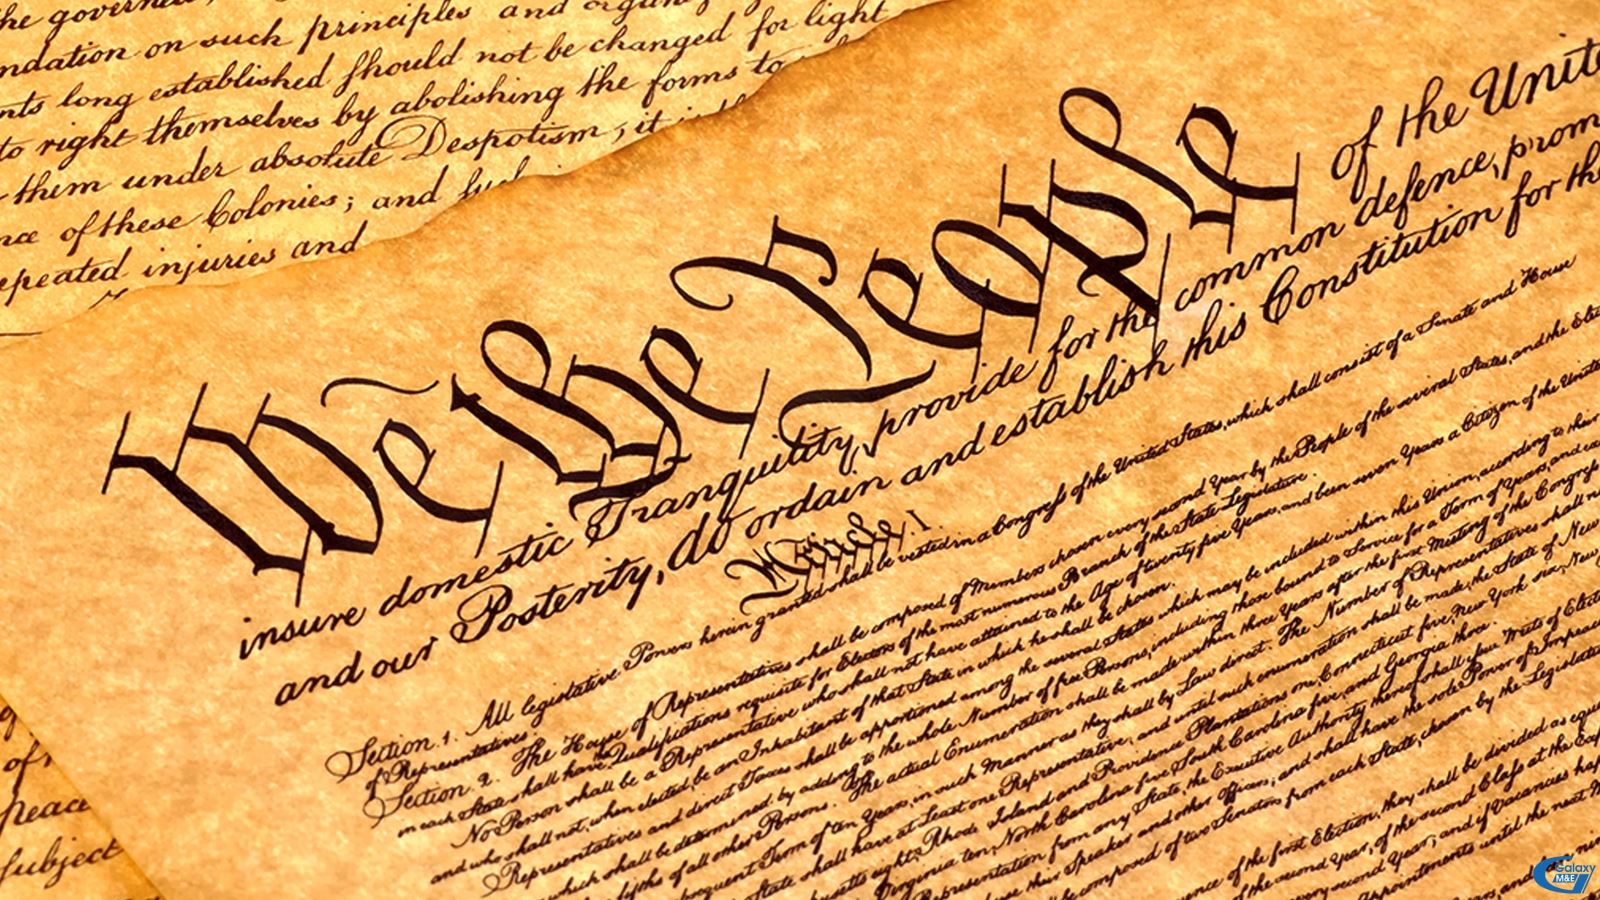 the governed,
ndation on such principles and organi
nts long established should not be changed for light
to right themselves by abolishing the forms to
them under absolute Despotism, it is
nce of these Colonies; and such
epeated injuries and
We the People of the Unite
insure domestic Tranquility, provide for the common defence, prom
and our Posterity, do ordain and establish this Constitution for the
Article I.
Section. 1. All legislative Powers herein granted shall be vested in a Congress of the United States, which shall consist of a Senate and House
of Representatives.
Section. 2. The House of Representatives shall be composed of Members chosen every second Year by the People of the several States, and the Elec
in each State shall have Qualifications requisite for Electors of the most numerous Branch of the State Legislature.
No Person shall be a Representative who shall not have attained to the Age of twenty five Years, and been seven Years a Citizen of the United
and who shall not, when elected, be an Inhabitant of that State in which he shall be chosen.
Representatives and direct Taxes shall be apportioned among the several States which may be included within this Union, according to their
which shall be determined by adding to the whole Number of free Persons, including those bound to Service for a Term of Years, and
of all other Persons. The actual Enumeration shall be made within three Years after the first Meeting of the Congress
Term of ten Years, in such Manner as they shall by Law direct. The Number of Representatives shall n
State shall have at Least one Representative; and until such enumeration shall be made, the State of New
eight, Rhode Island and Providence Plantations one, Connecticut five, New York six, New
Virginia ten, North Carolina five, South Carolina five, and Georgia three.
Representation from any State, the Executive Authority thereof shall issue Writs of Elect
their Speaker and other Officers; and shall have the sole Power of Impeac
be composed of two Senators from each State, chosen by the Legislatu
of the first Election, they shall be divided as equa
of the second Year, of the second Class at the Exp
every second Year; and if Vacancies hap
Appointments until the next M
of
peace
subject
Galaxy
M&E